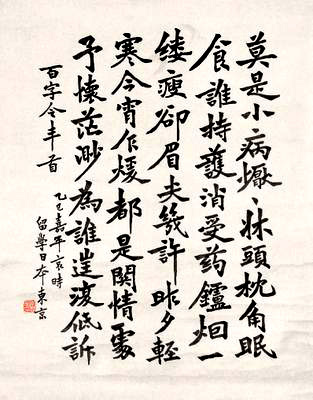 莫是小病懨、牀頭枕角眠
食誰持護消受药鑪烟一
缕瘦卻眉夫幾許昨夕輕
寒今宵乍煖都是関情處
予懷茫渺為誰遑復低訴
百字令半首
乙巳嘉平哀時
留學日本東京